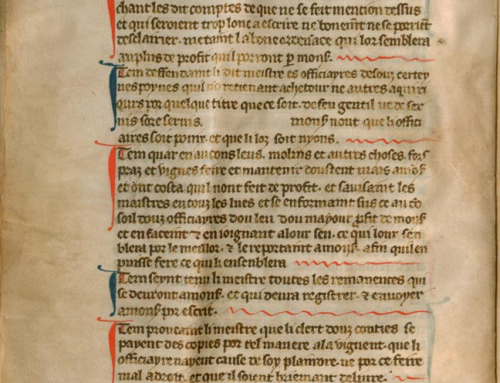 chant les dit comptes de que ne se feit mention dessus
et qui seroient trop lonc a escrire ne bonemt ne se porroit
desclairier. metant la bone ordenace qui lor semblera
au plus de profit quil porront p mons.
Item deffendant li dit meistre es officiayres desouz certey
nes poynes quil no retienant achetour ne autres aquiri
quirs por quelque titre que ce soit. de feu gentil ne de ser
nis sere sernis. mons nout que li offici
aires soit poniz. et que li lor soit nyons.
Item quar en aucons leus. molins et autres choses. fors
praz et vignes feire et mantenir coustent mais a mons
et ont costa quil nont feit de profit. et sauisaint les
maistres en touz les lues et se enformaint sus ce au co
soil douz officiayres dou leu dou mayour profit de mons
et en facent et en ioignant a lour seu. ce qui lour sen
blera por le mellor. et le reportaint a mons. afin quil en
puisse fere ce qui li ensenblera
Item seynt tenu li meistre toutes les remanences qui
se devront a mons. et qui devra registrer. et envoyer
a mons por escrit.
Item proveant li meistre que li clert douz contes se
payent des copies por tel manere a la viguent. que li
officiayre nayent cause de soy plaindre. ne por ce feire
mal a droit. et que il soient briemant delivre.